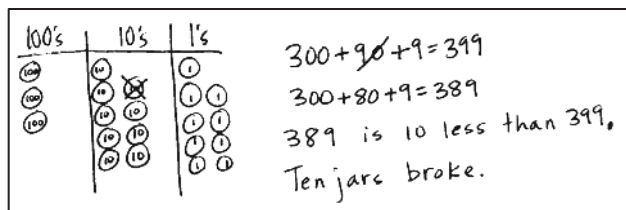 100's 10's 1's
100 10 1
100 10 1 1
100 10 10 1 1
10 10 1 1
10 10 1 1
300+90+9=399
300+80+9=389
389 is 10 less than 399.
Ten jars broke.